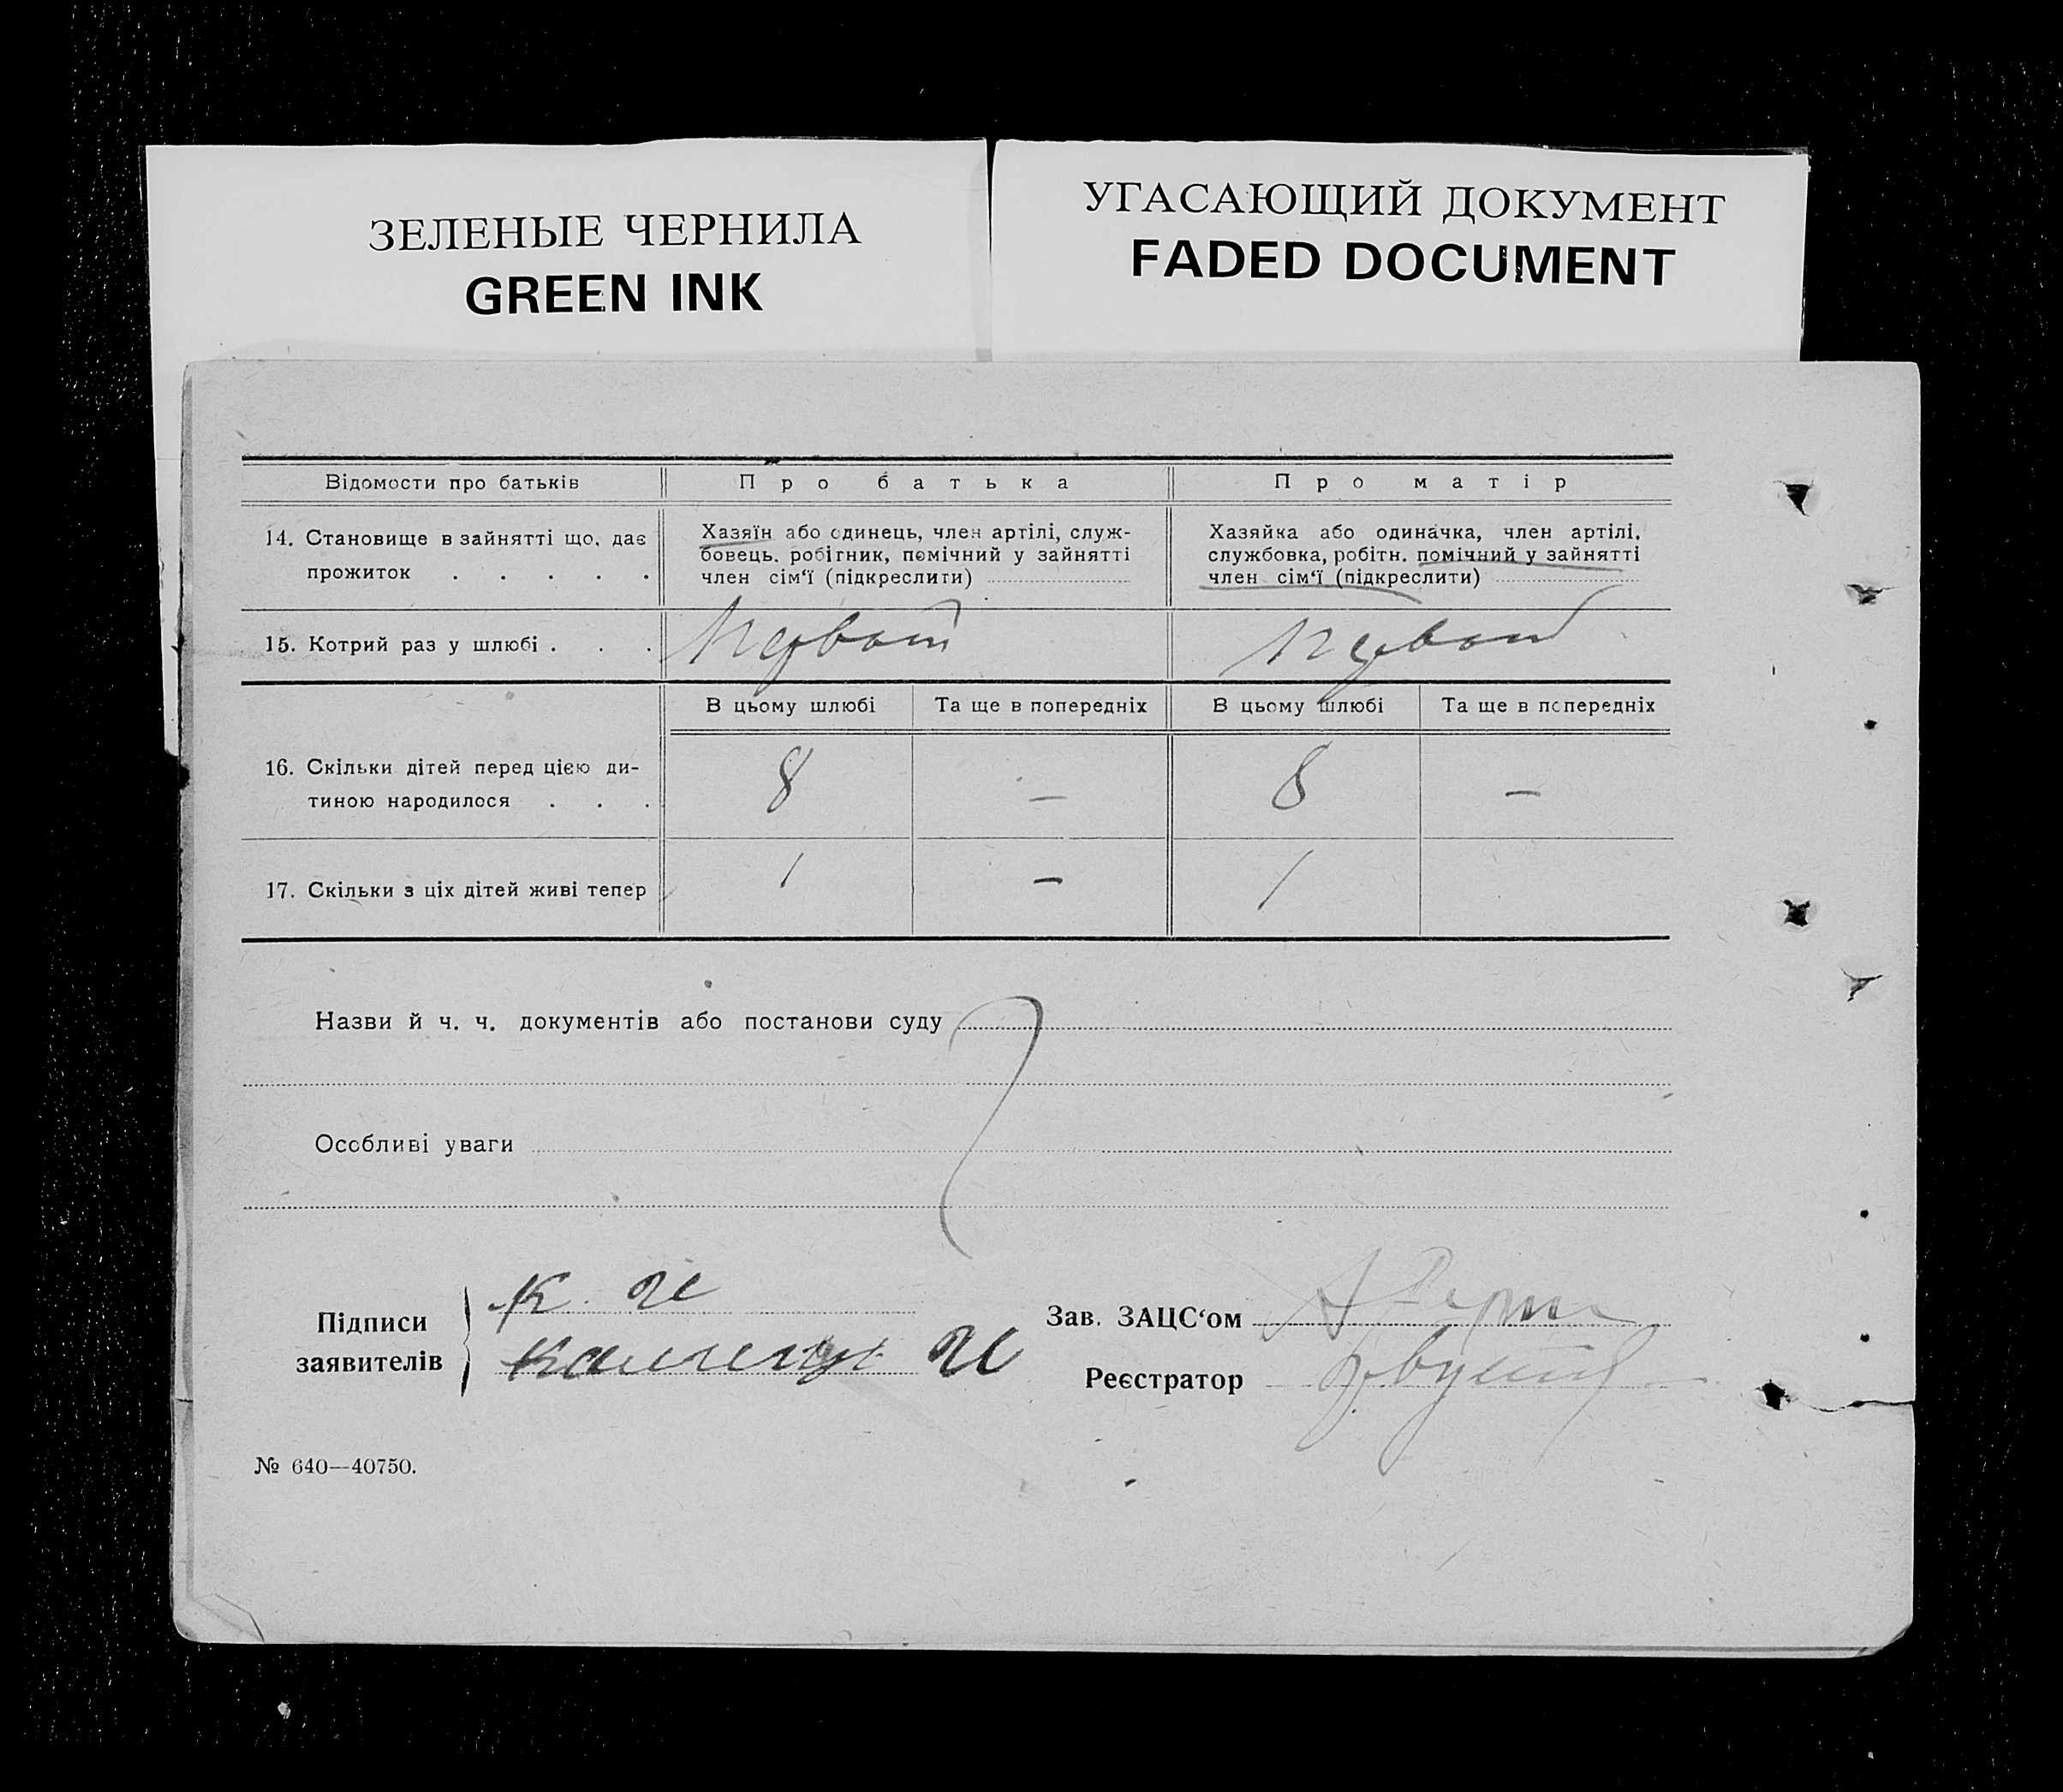 ЗЕЛЕНЫЕ ЧЕРНИЛА
GREEN INK
УГАСАЮЩИЙ ДОКУМЕНТ
FADED DOCUMENT
Відомости про батьків
Про батька
Про матір
14. Становище в зайнятті що, дає
прожиток . . . . .
Хазяїн або єдинець, член артілі, служ-
бовець, робітник, помічний у зайнятті
член сім‘ї (підкреслити)
Хазяйка або одиначка, член артілі,
службовка, робітн. помічний у зайнятті
член сім‘ї (підкреслити)
15. Котрий раз у шлюбі . . .
Первый
Первый
В цьому шлюбі
Та ще в попередніх
В цьому шлюбі
Та ще в попередніх
16. Скільки дітей перед цією ди-
тиною народилося . . .
8
—
8
—
17. Скільки з ціх дітей живі тепер
1
—
1
Назви й ч. ч. документів або постанови суду
Особливі уваги
Підписи
заявителів
К. И
И
Зав. ЗАЦС‘ом
Реєстратор
№ 640—40750.